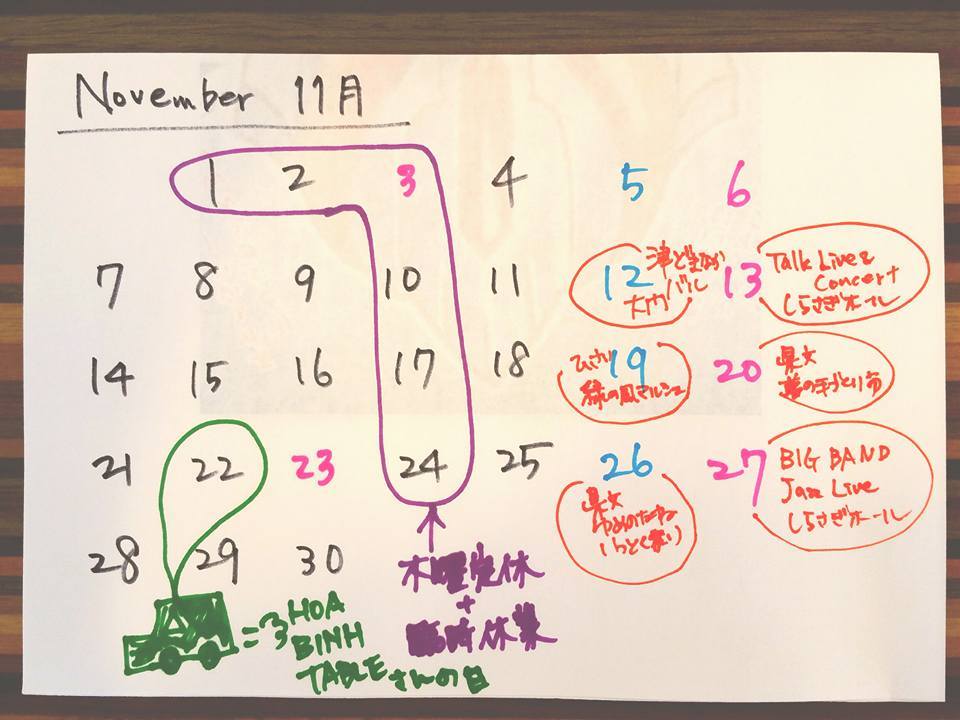 November 11月
1 2 3 4 5 6
7 8 9 10 11 12 13
津ぐるなか
バル
大門
Talk Live &
Concert
しらさぎホール
14 15 16 17 18 19 20
緑の風マルシェ
県文
夢の手づくり市
21 22 23 24 25 26 27
県文
BIG BAND
Jazz Live
しらさぎホール
28 29 30
木曜定休
+
臨時休業
= HOA
BINH
TABLE さんの日